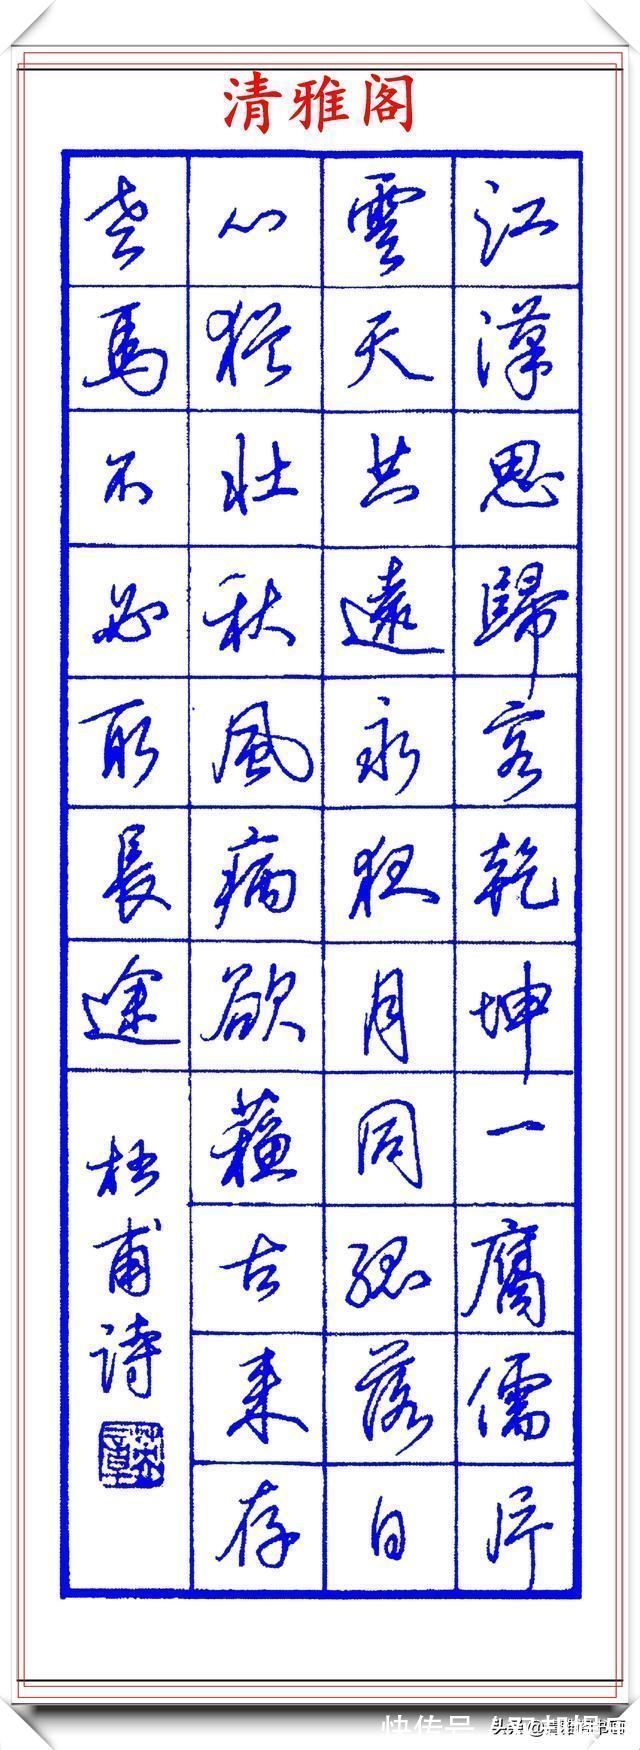 清雅阁
江漢思歸客乾坤一腐儒片
雲天共遠永夜月同孤落日
心猶壯秋風病欲蘇古來存
老馬不必取長途
杜甫詩
快传号/